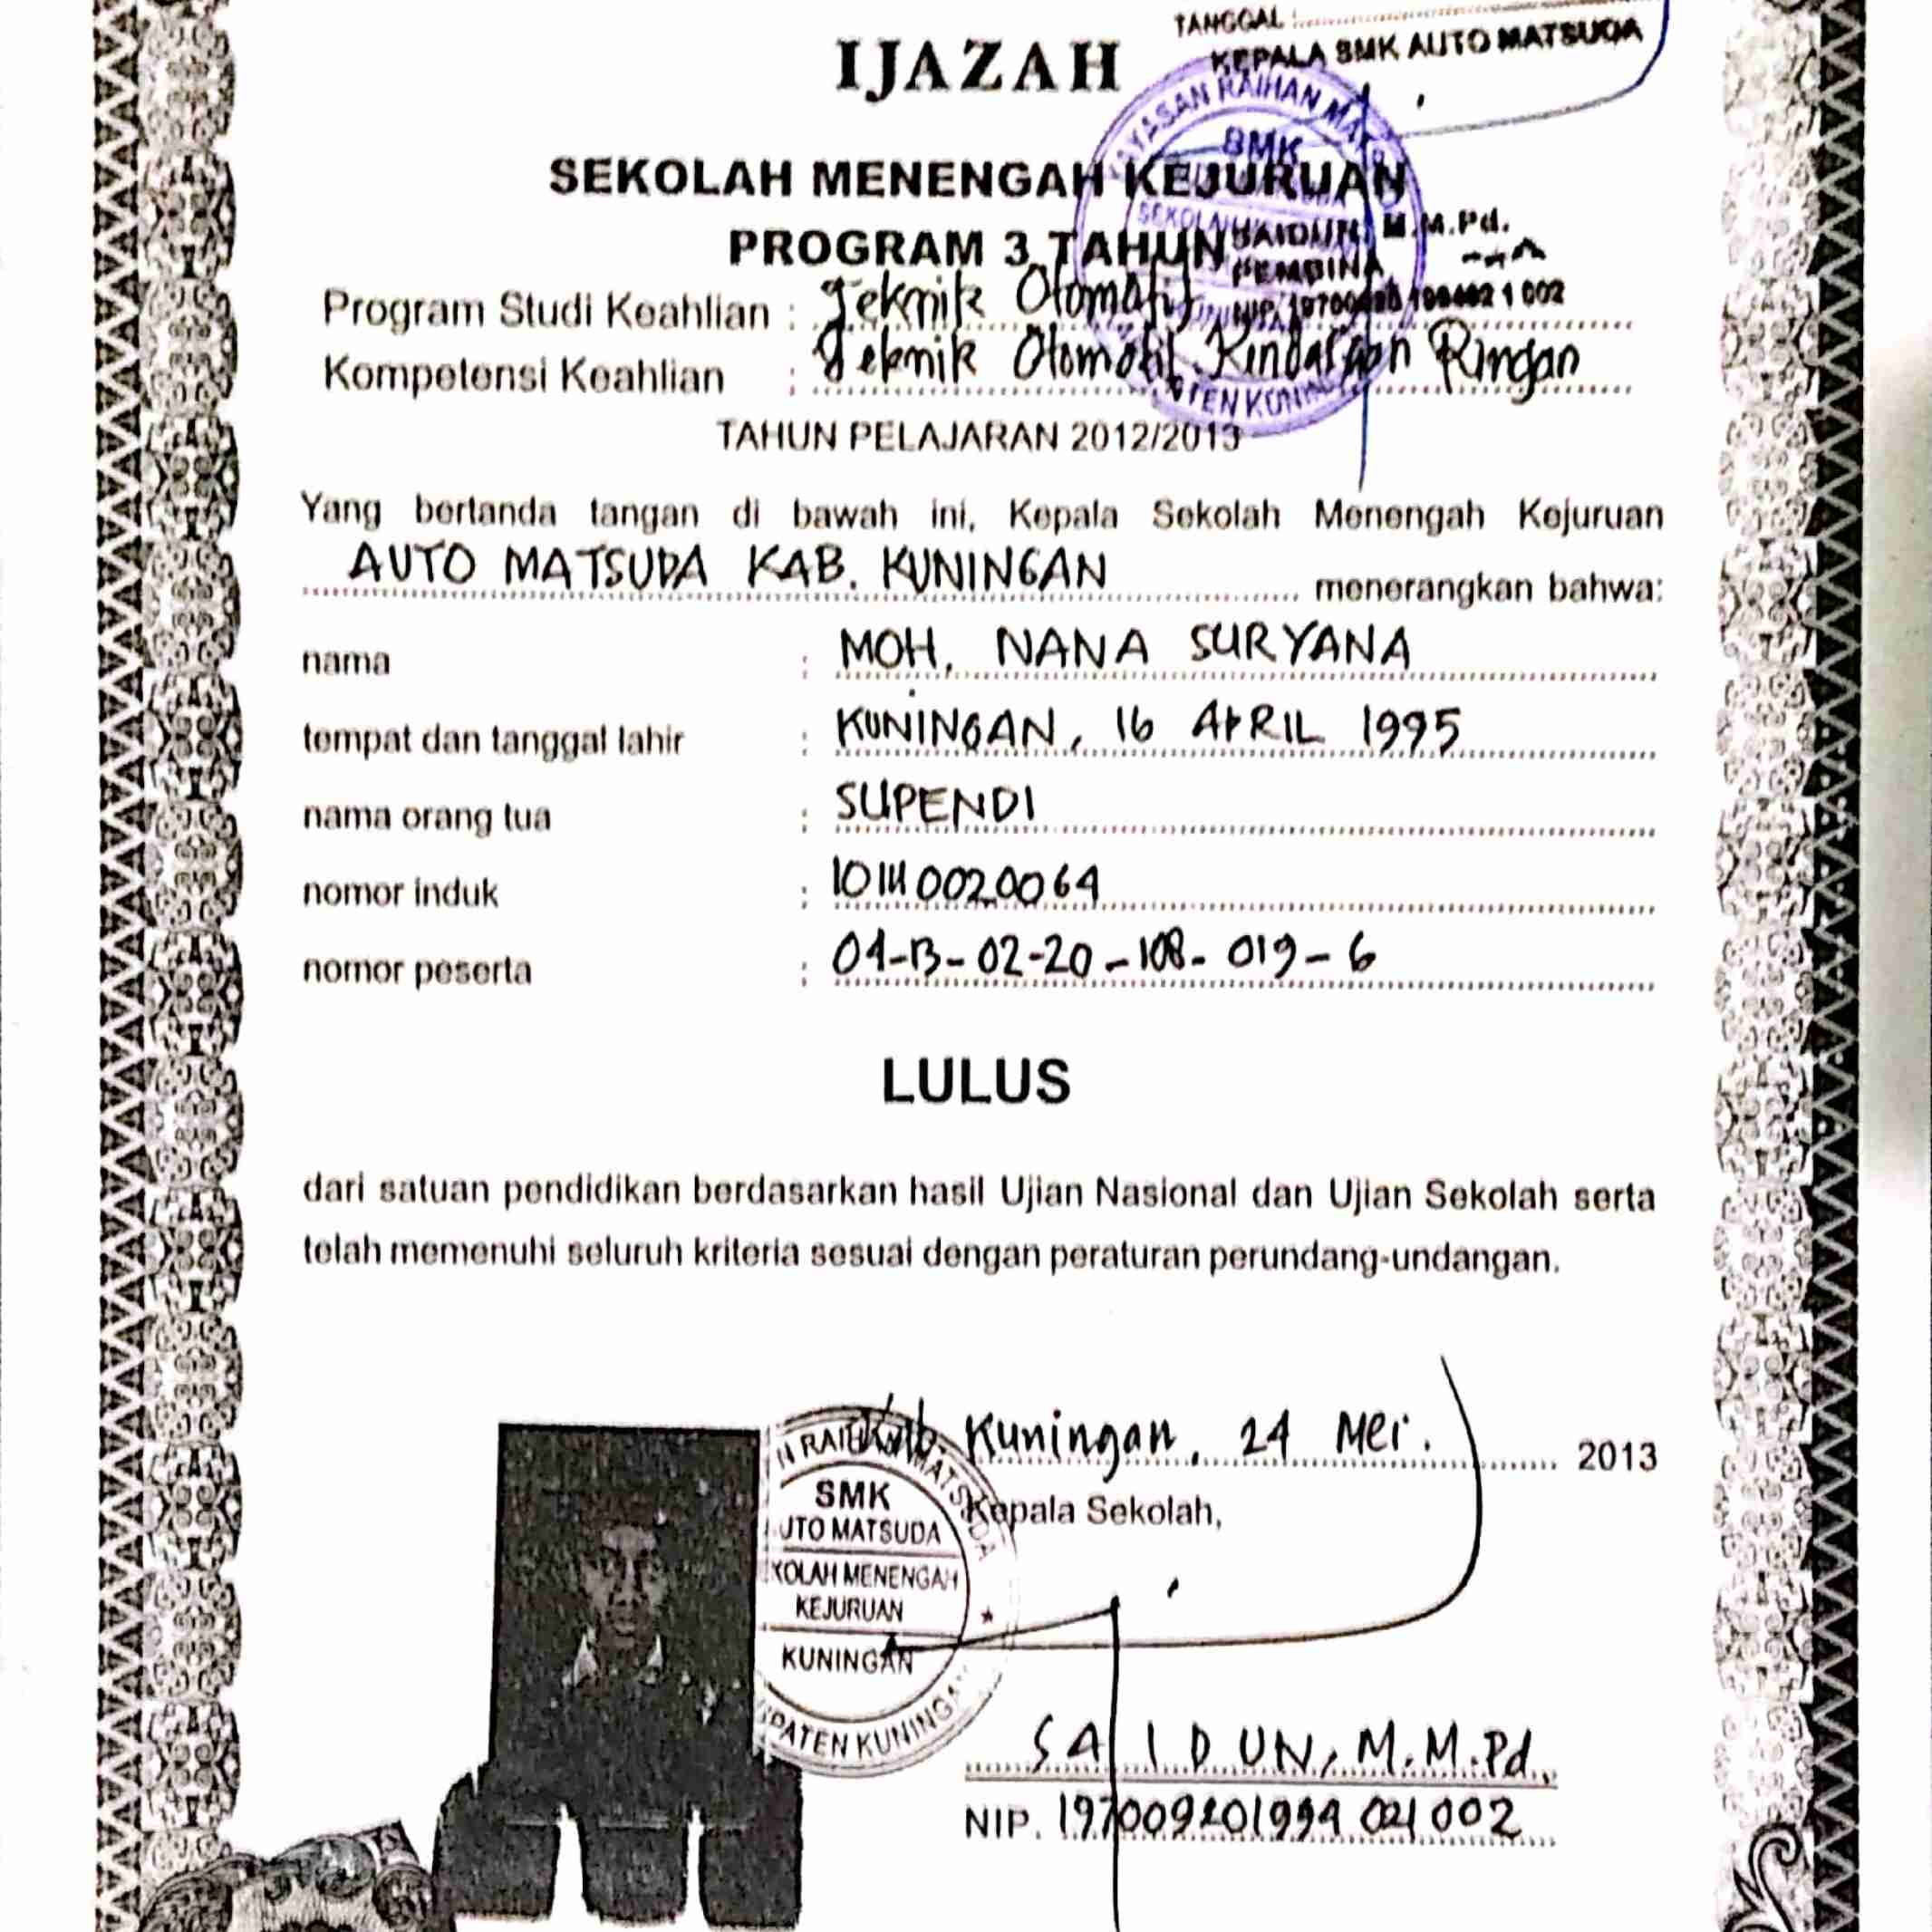 TANGGAL :
KEPALA SMK AUTO MATSUDA
IJAZAH
YAYASAN RAIHAN
SMK
SEKOLAH MENENGAH KEJURUAN
SAIDUN, M.M.Pd.
PROGRAM 3 TAHUN
PEMBINA
Program Studi Keahlian : Teknik Otomotif
Kompetensi Keahlian : Teknik Otomotif Kendaraan Ringan
TAHUN PELAJARAN 2012/2013
Yang bertanda tangan di bawah ini, Kepala Sekolah Menengah Kejuruan
AUTO MATSUDA KAB. KUNINGAN menerangkan bahwa:
nama : MOH. NANA SURYANA
tempat dan tanggal lahir : KUNINGAN, 16 APRIL 1995
nama orang tua : SUPENDI
nomor induk : 101110020064
nomor peserta : 04-13-02-20-108-019-6
LULUS
dari satuan pendidikan berdasarkan hasil Ujian Nasional dan Ujian Sekolah serta
telah memenuhi seluruh kriteria sesuai dengan peraturan perundang-undangan.
Kab. Kuningan, 24 Mei. 2013
Kepala Sekolah,
SMK
UTO MATSUDA
KOLAH MENENGAH
KEJURUAN
KUNINGAN
PATEN KUNINGAN
SAIDUN, M.M.Pd.
NIP. 197009201994021002